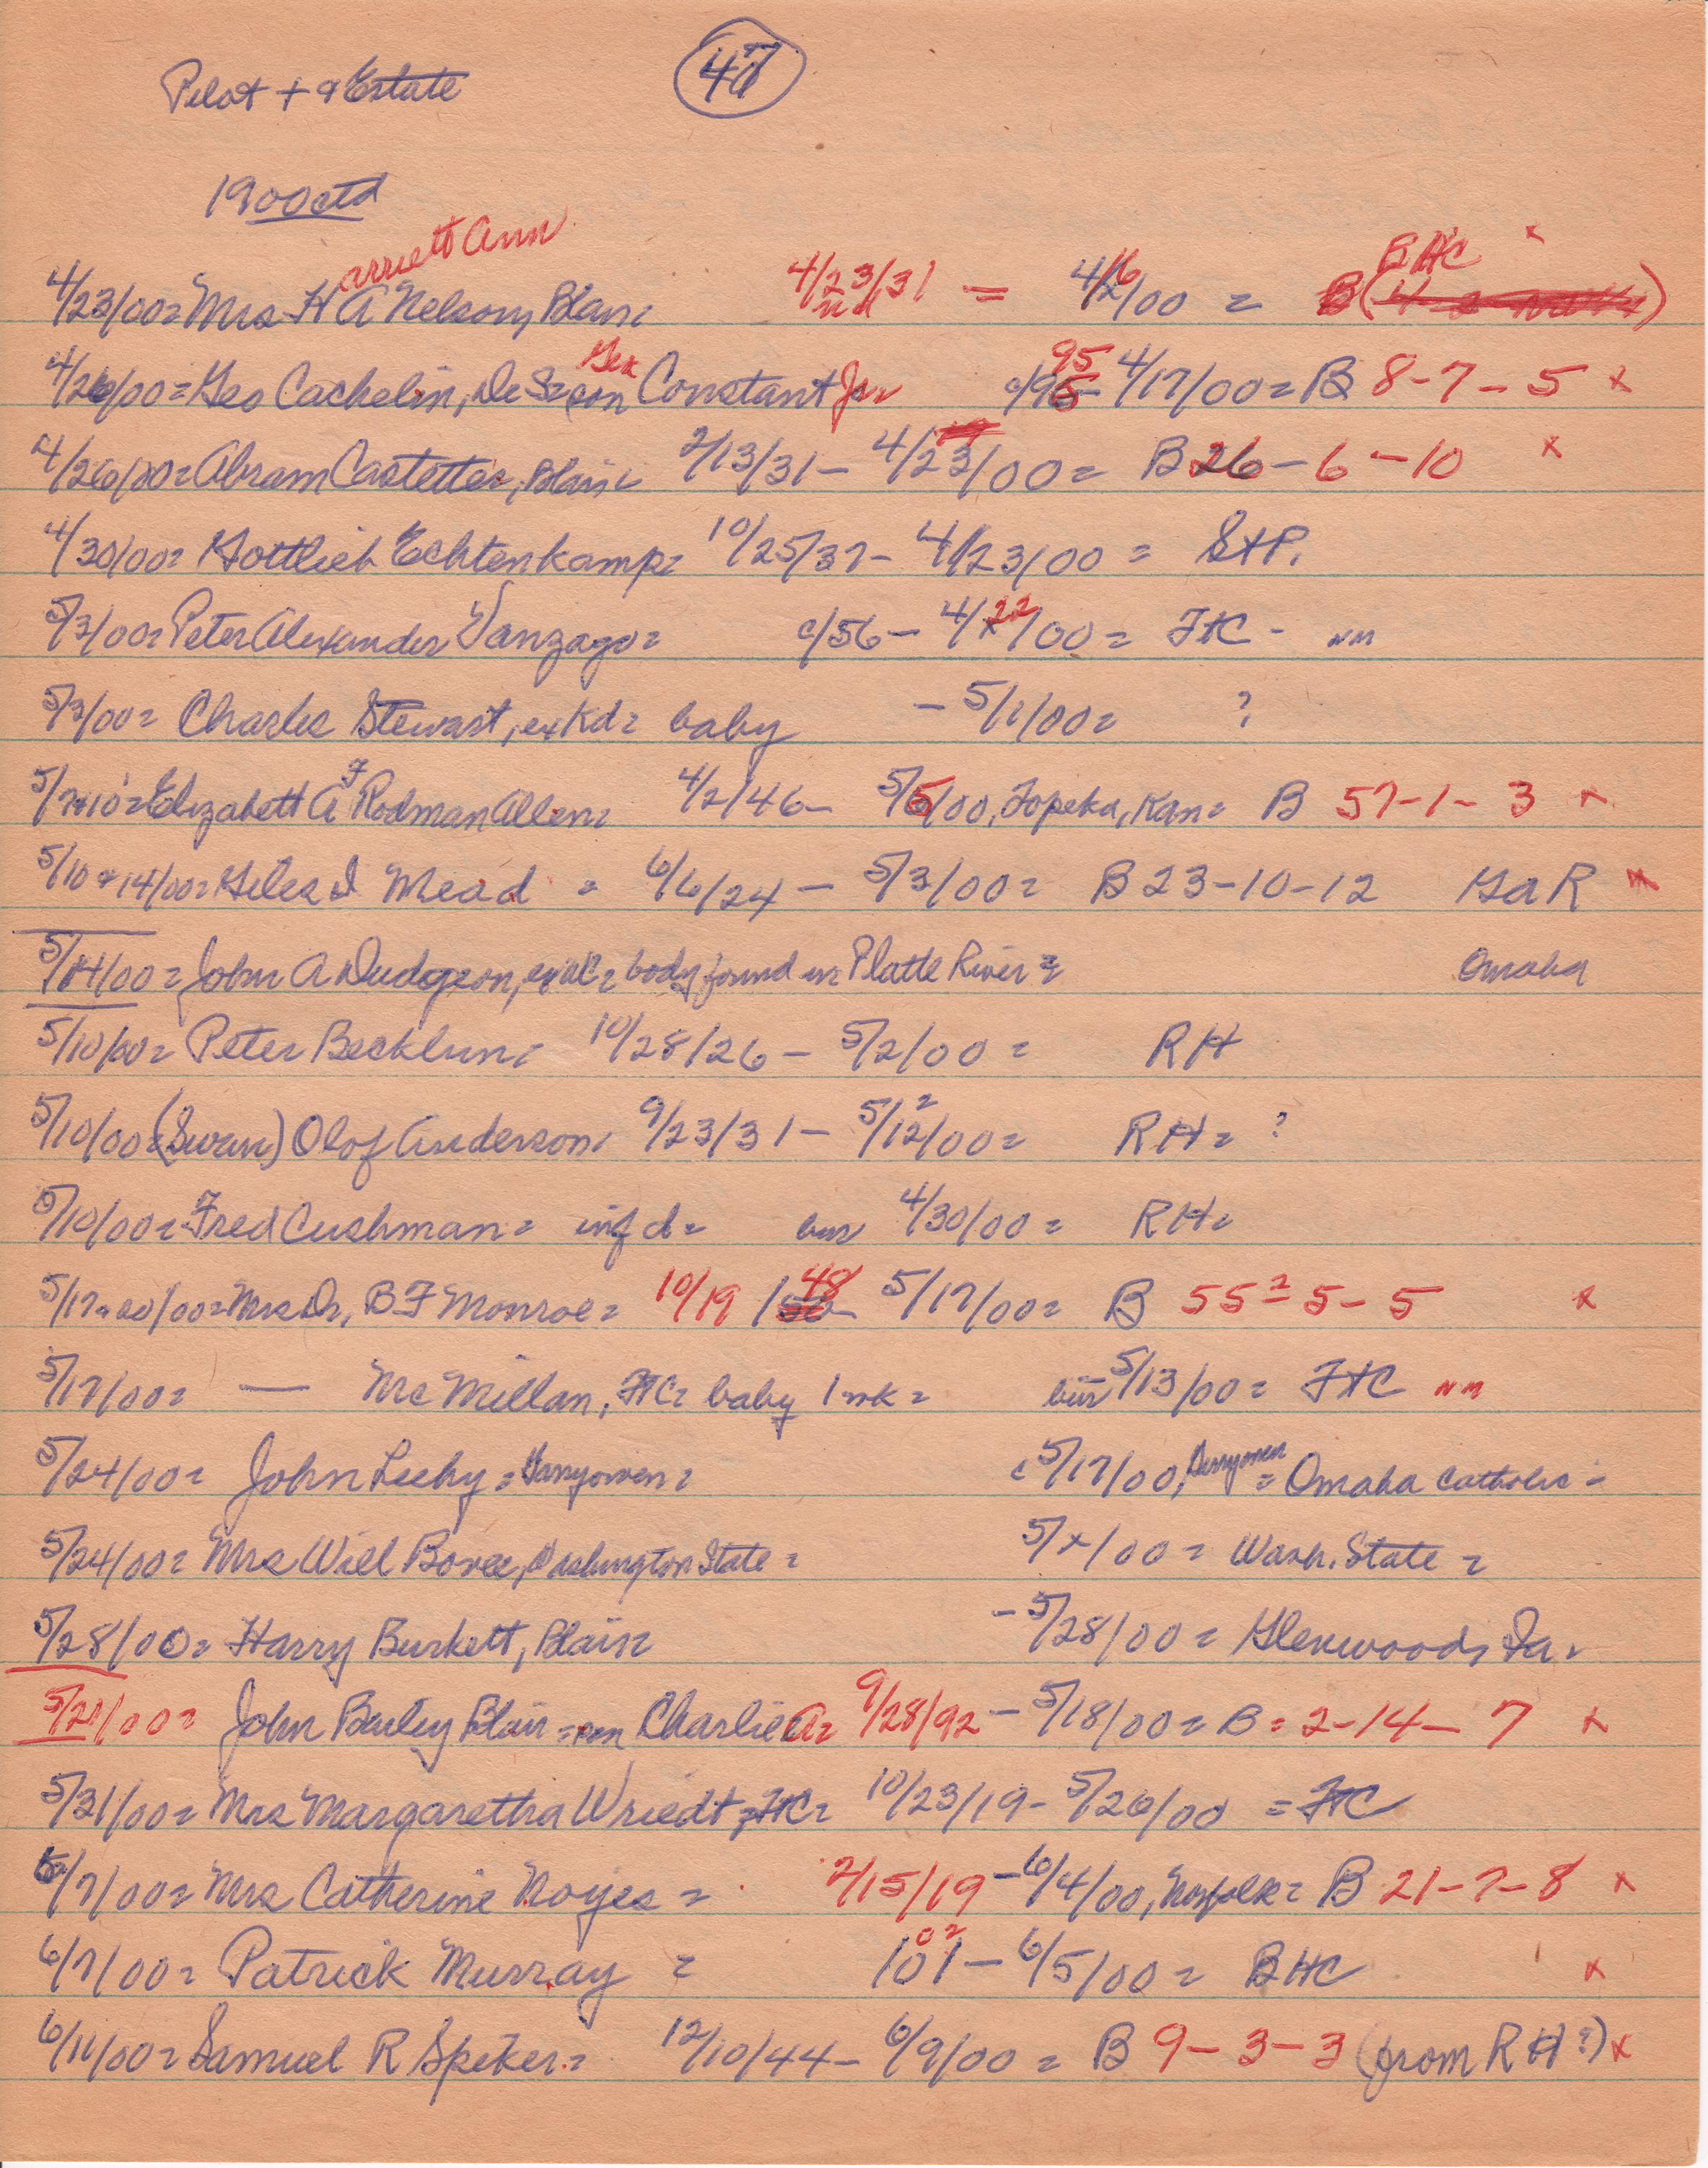 Pilot + Estate
47
1900 ctd
arriett Ann
BHC x
4/23/00= Mrs H A Nelson, Blair= 4/23/31 = 4/16/00 = B
4/26/00= Geo Cachelin, DeS= son Geo Constant Jr c/95- 4/17/00= B 8-7-5 x
4/26/00= Abram Castetter, Blair= 2/13/31- 4/23/00= B 26-6-10 x
4/30/00= Gottlieb Echtenkamp= 10/25/37- 4/23/00 = StP.
5/3/00= Peter Alexander Vanzago= c/56- 4/22/00= FtC - NM
5/3/00= Charles Stewart, ex Kd= baby - 5/1/00= ?
Elizabeth A F Rodman Allen= 4/2/46- 5/5/00, Topeka, Kan= B 57-1-3 x
5/10&14/00= Giles I Mead = 6/6/24- 5/3/00= B 23-10-12 GaR x
5/14/00= John A Dudgeon, body found in Platte River= Omaha
5/10/00= Peter Becklun= 10/28/26- 5/2/00= RH
5/10/00= (Swan) Olof Anderson= 9/23/31- 5/12/00= 2 RH= ?
5/10/00= Fred Cushman= inf d= bur 4/30/00= RH=
5/17&20/00= Mrs Dr, BF Monroe= 10/19/48 5/17/00= B 55=5-5 x
5/17/00= — McMillan, FtC= baby 1 wk= bur 5/13/00= FtC NM
5/24/00= John Leehy= Garryowen= c 5/17/00, Garryowen= Omaha Catholic=
5/24/00= Mrs Will Bovee, Washington State= 5/x/00= Wash. State=
5/28/00= Harry Burkett, Blair= -5/28/00= Glenwood, Ia=
5/21/00= John Bailey Blair= son Charlie A= 9/28/92- 5/18/00= B= 2-14-7 x
5/31/00= Mrs Margarettha Wriedt, FtC= 10/23/19- 5/26/00 = FtC
6/7/00= Mrs Catherine Noyes= 2/15/19- 6/4/00, Norfolk= B 21-7-8 x
6/7/00= Patrick Murray = 101- 02 6/5/00= BHC x
6/11/00= Samuel R Speker= 12/10/44- 6/9/00= B 9-3-3 (from RH?) x